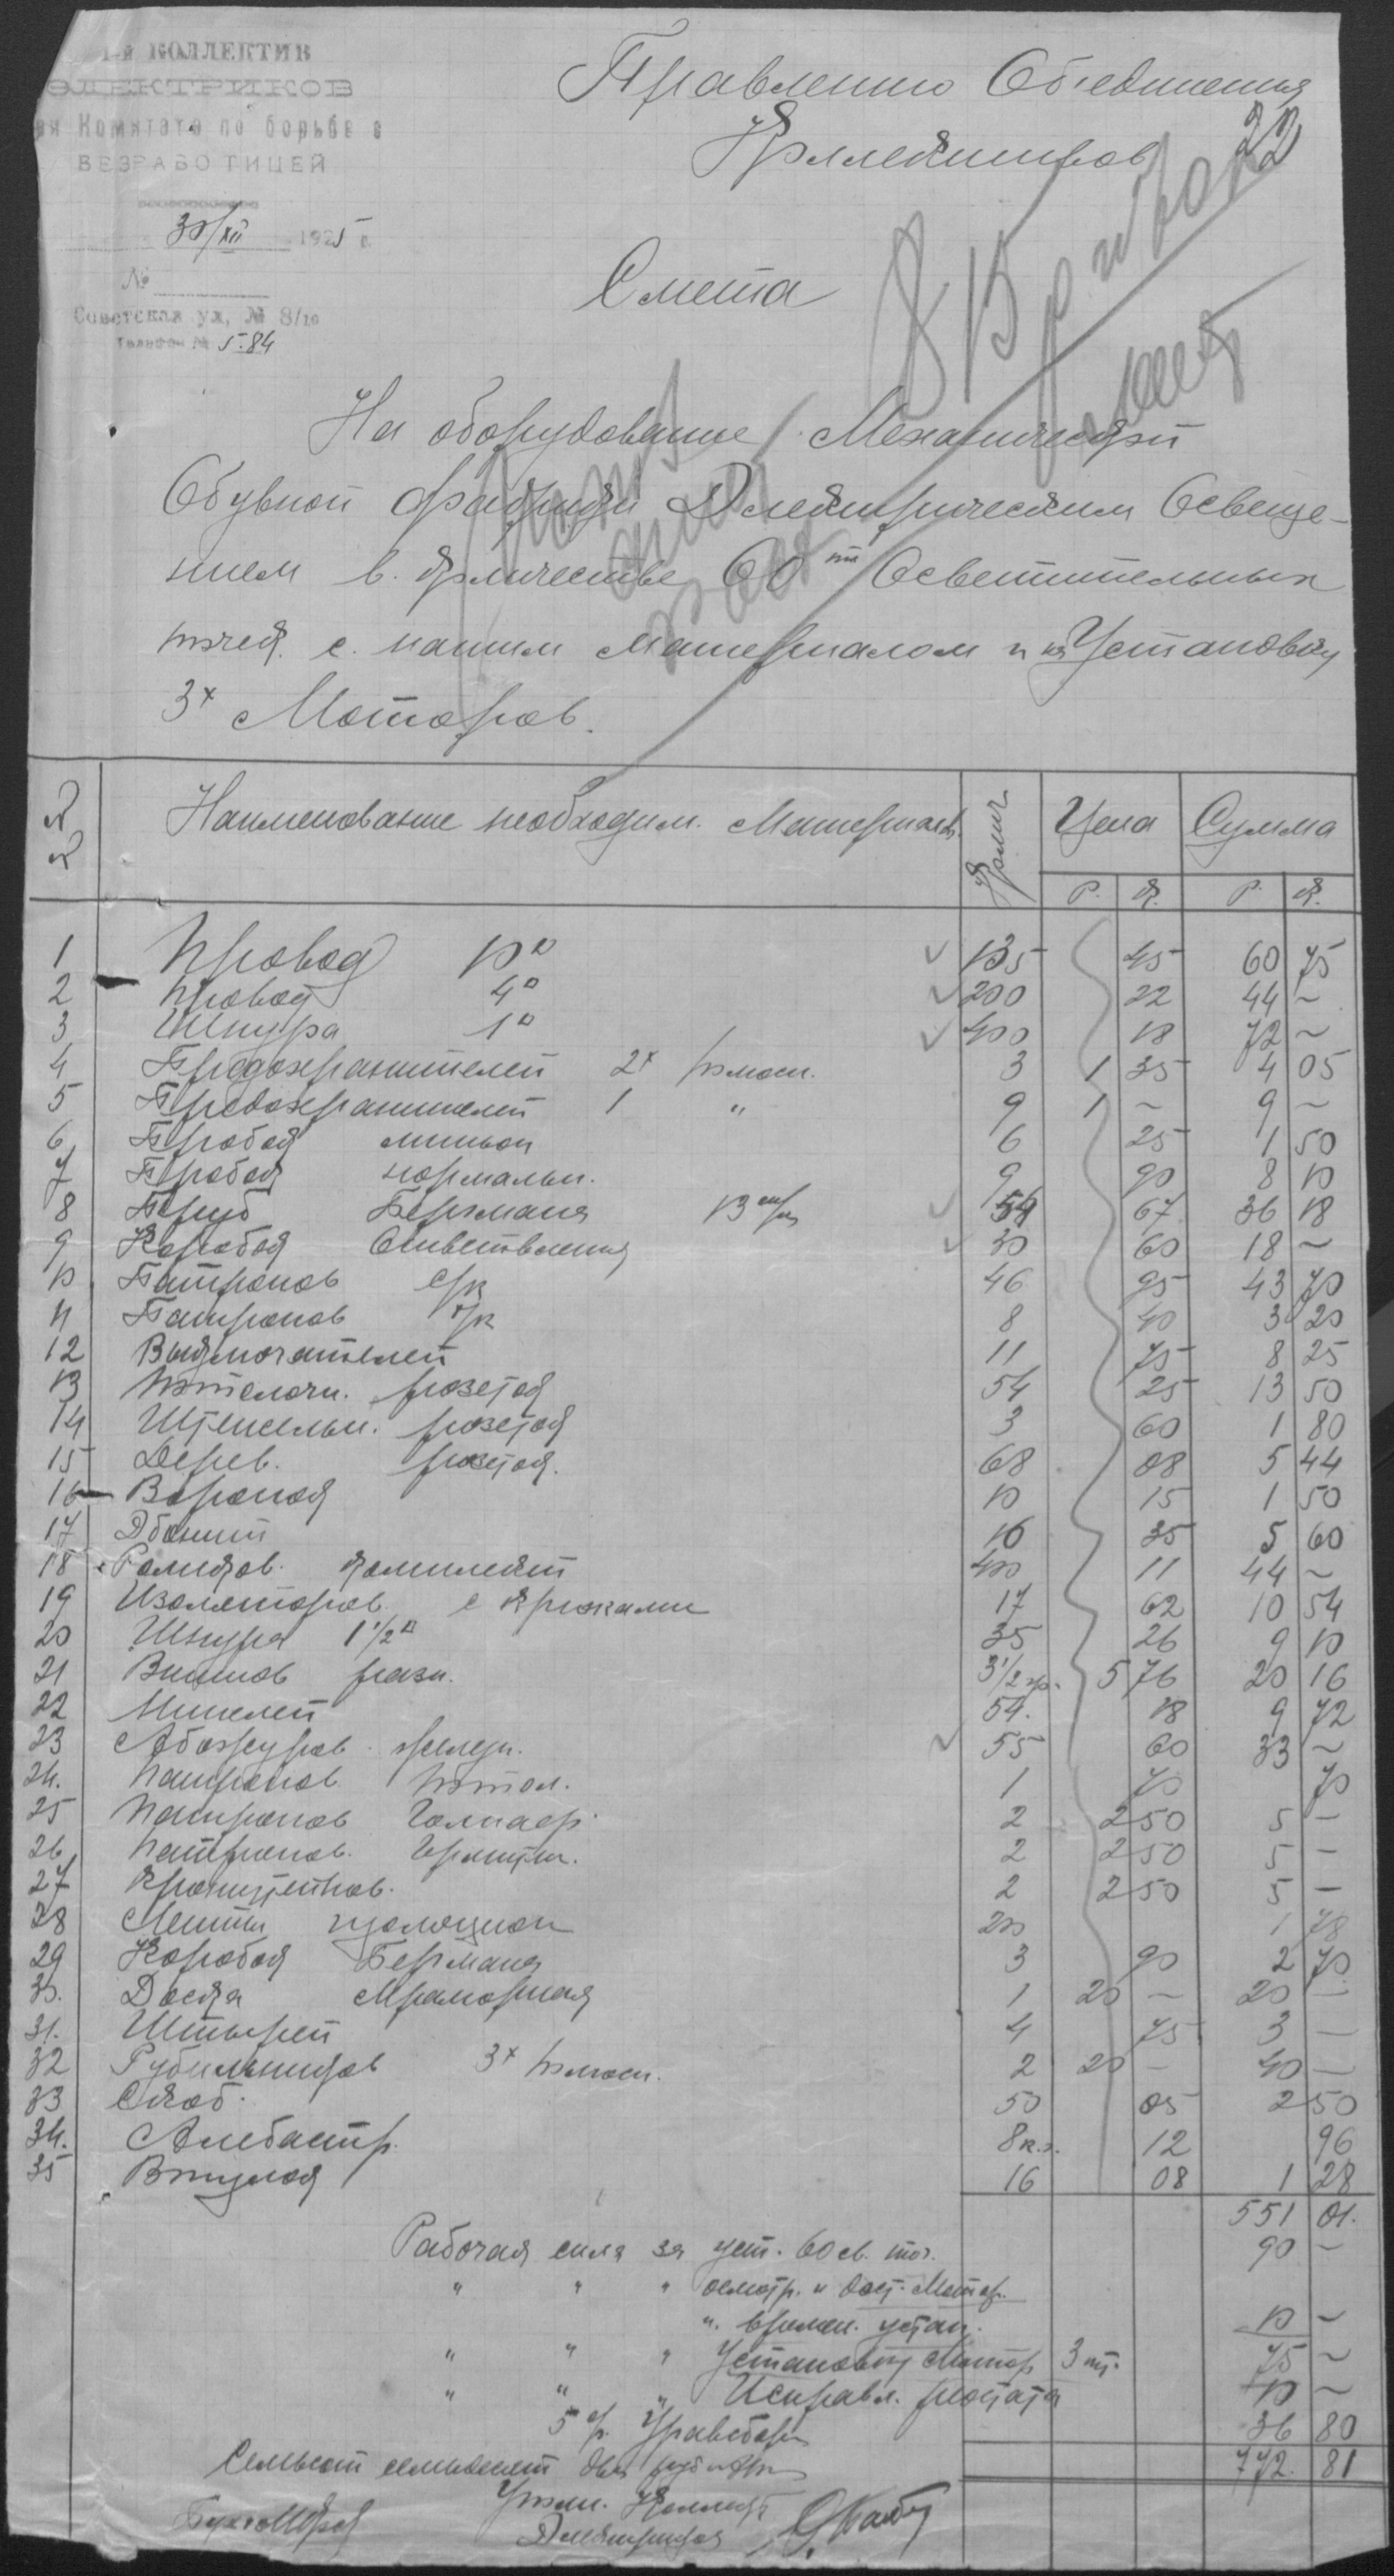 1-й КОЛЛЕКТИВ
ЭЛЕКТРИКОВ
Комитета по борьбе с
БЕЗРАБОТИЦЕЙ
30/XII 1925 г.
№
Советская ул, № 8/10
Телефон № 5.84
Правлению Объединения
Коллективов
22
Смета
На оборудование Механической
Обувной фабрики Электрическим Освеще-
нием в количестве 60 ти Осветительных
точек с нашим материалом и на Установку
3х Моторов.
№№ Наименование необходим. Материалов Колич Цена Сумма
Р. К. Р. К.
1 Провод 10□ 135 45 60 75
2 Провод 4□ 200 22 44 ~
3 Шнура 1□ 400 18 72 ~
4 Предохранителей 2х полюсн. 3 1 35 4 05
5 Предохранителей 1 " 9 1 ~ 9 ~
6 Пробок миньон 6 25 1 50
7 Пробок нормальн. 9 90 8 10
8 Труб Бергмана 13 m/m 54 67 36 18
9 Коробок Ответвления 30 60 18 ~
10 Патронов с/к 46 95 43 70
11 Патронов б/к 8 40 3 20
12 Выключателей 11 75 8 25
13 Потолочн. розеток 54 25 13 50
14 Штепсельн. розеток 3 60 1 80
15 Дерев. розеток 68 08 5 44
16 Воронок 10 15 1 50
17 16 35 5 60
18 Роликов комплект 400 11 44 ~
19 Изоляторов с крюками 17 62 10 54
20 Шнура 1 1/2□ 35 26 9 10
21 Винтов разн. 3 1/2 гр. 5 76 20 16
22 54. 18 9 72
23 Абажуров 55 60 33 ~
24. Патронов Потол. 1 70 70
25 Патронов 2 2 50 5 —
26 Патронов 2 2 50 5 —
27 Кронштейнов. 2 2 50 5 —
28 Ленты изоляцион 200 1 78
29 Коробок Бергмана 3 90 2 70
30. Доска Мраморная 1 20 — 20 —
31. Штырей 4 75 3 —
32 Рубильников 3х полюсн. 2 20 — 40 —
33 Скоб. 50 05 2 50
34. Алебастр. 8 к.г. 12 96
35 Втулок 16 08 1 28
551 01.
Рабочая сила за уст. 60 св. точ. 90 —
" " " осмотр. и дост. Мотор.
". времен. устан. 10 ~
" " " Установку Мотор 3 шт. 75 ~
" " " Исправл. реостата 10 ~
5 % 36 80
772. 81
Семьсот семьдесят два руб
Уполн. Коллект
Электриков